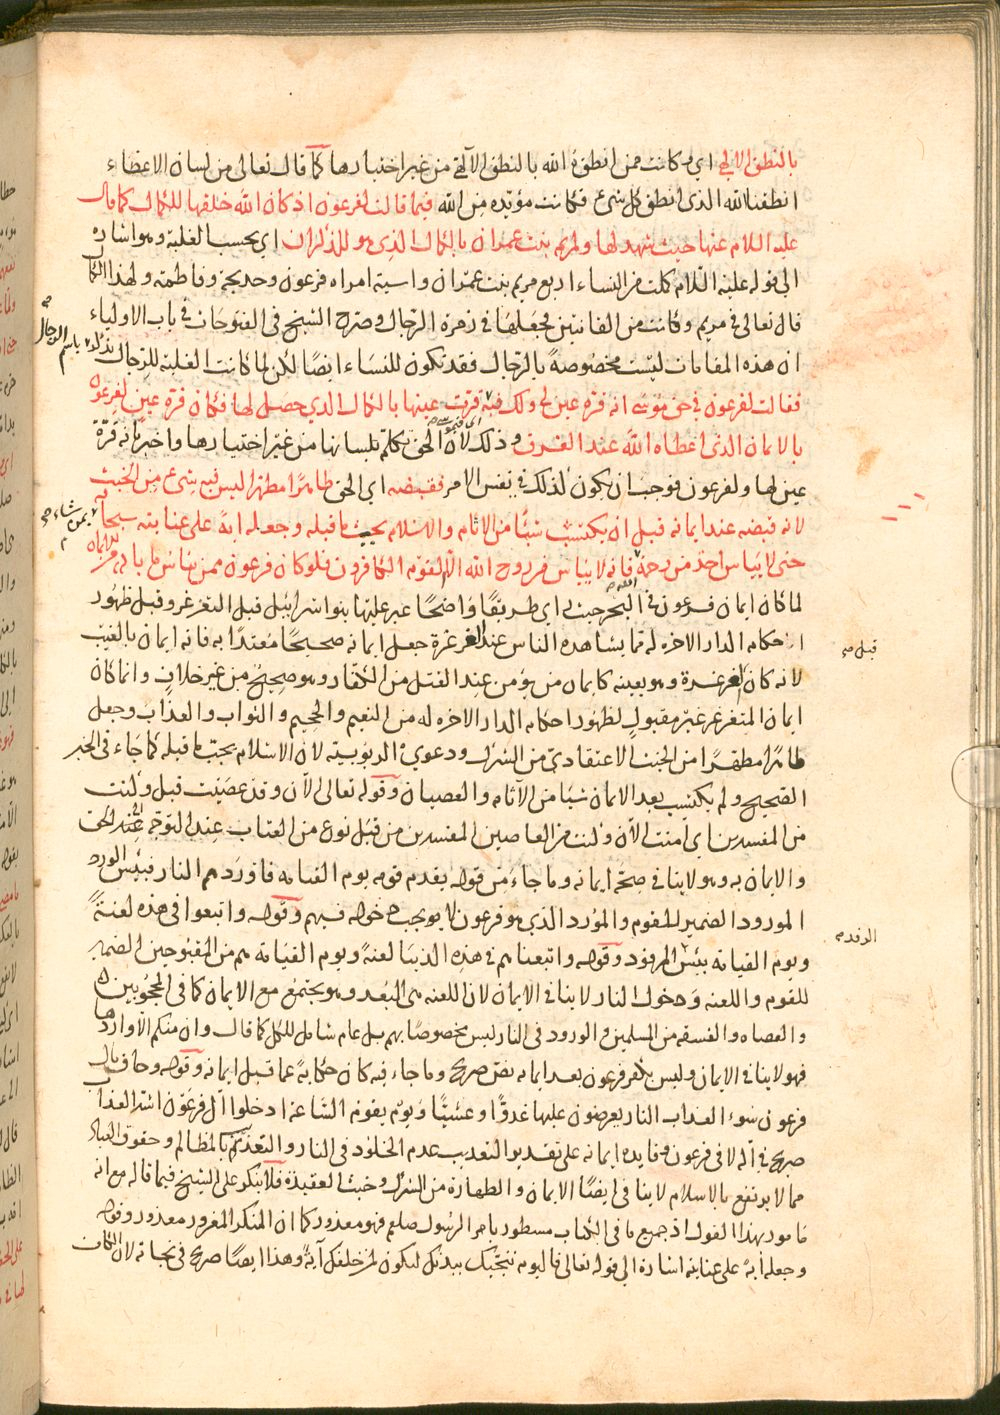 بالنطق الالهي اي وكانت ممن انطقه الله بالنطق الالهي من غير اختيارها كما قال تعالى من لسان الاعضاء
انطقنا الله الذي انطق كل شيء فكانت مؤيدة من الله فيما قالت لفرعون اذ كان الله خلقها للكمال كما قال
عليه السلام عنها حيث شهد لها ولمريم بنت عمران بالكمال الذي هو للذكران اي بحسب الغلبة وهو اشارة
الى قوله عليه السلام كملت من النساء اربع مريم بنت عمران واسية امراة فرعون وخديجة وفاطمة ولهذا الكمال
قال تعالى في مريم وكانت من القانتين فجعلها في زمرة الرجال وصرح الشيخ في الفتوحات في باب الاولياء
ان هذه المقامات ليست مخصوصة بالرجال فقد تكون للنساء ايضا لكن لما كانت الغلبة للرجال تذكر باسم الرجال صح
فقالت لفرعون في حق موسى انه قرة عين لي ولك فبه قرت عينها بالكمال الذي حصل لها فكان قرة عين لفرعون
بالايمان الذي اعطاه الله عند الغرق وذلك لان الحق تكلم بلسانها من غير اختيارها واخبر بانه قرة
عين لها ولفرعون فوجب ان يكون كذلك في نفس الامر فقبضه اي الحق طاهرا مطهرا ليس فيه شيء من الخبث
لانه قبضه عند ايمانه قبل ان يكتسب شيئا من الاثام والاسلام يجب ما قبله وجعله اية على عنايته سبحانه بمن شاء صح
حتى لا يياس احد من رحمة الله فانه لا يياس من روح الله الا القوم الكافرون فلو كان فرعون ممن يئس ما بادر الى الايمان
لما كان ايمان فرعون في البحر حيث راى طريقا واضحا عبر عليها بنوا اسرائيل قبل التغرغر وقبل ظهور
احكام الدار الاخرة له مما يشاهده الناس عند الغرغرة جعل ايمانه صحيحا معتدا به فانه ايمان بالغيب
لانه كان قبل صح الغرغرة وهو بعينه كايمان من يؤمن عند القتل من الكفار وهو صحيح من غير خلاف وانما كان
ايمان المتغرغر غير مقبول لظهور احكام الدار الاخرة له من النعيم والجحيم والثواب والعذاب وجعل
طاهرا مطهرا من الخبث الاعتقادي من الشرك ودعوى الربوبية لان الاسلام يجب ما قبله كما جاء في الخبر
الصحيح ولم يكتسب بعد الايمان شيئا من الاثام والعصيان وقوله تعالى الآن وقد عصيت قبل وكنت
من المفسدين اي امنت الآن وكنت من العاصين المفسدين من قبل نوع من العتاب عند التوجه الى الحق
والايمان به وهو لا ينافي صحة ايمانه وما جاء من قوله يقدم قومه يوم القيامة فاوردهم النار فبئس الورد
المورود الضمير للقوم والمورد الذي هو فرعون لا يوجب دخوله فيهم وقوله واتبعوا في هذه لعنة
ويوم القيامة بئس الرفد صح المرفود وقوله واتبعناهم في هذه الدنيا لعنة ويوم القيامة هم من المقبوحين الضمير
للقوم واللعنة ودخول النار لا ينافي الايمان لان اللعنة هي البعد وهو يجتمع مع الايمان كما في المحجوبين
والعصاة والفسقة من المسلمين والورود في النار ليس مخصوصا بهم بل عام شامل للكل كما قال وان منكم الا واردها
فهو لا ينافي الايمان وليس بكفر فرعون بعد ايمانه نص صريح وما جاء فيه كان حكاية عما قبل ايمانه وقوله وحاق بال
فرعون سوء العذاب النار يعرضون عليها غدوا وعشيا ويوم يقوم الساعة ادخلوا آل فرعون اشد العذاب
صريح في آله لا في فرعون وفايدة ايمانه على تقدير التعذيب عدم الخلود في النار والتعذيب بالمظالم وحقوق العباد
مما لا يرتفع بالاسلام لا ينافي ايضا الايمان والطهارة من الشرك وخبث العقيدة فلا ينكر على الشيخ فيما قاله مع انه
مامور بهذا القول اذ جميع ما في الكتاب مسطور بامر الرسول صلعم فهو معذور كما ان المنكر المغرور معذور وقوله
وجعله اية على عنايته اشارة الى قوله تعالى فاليوم ننجيك ببدنك لتكون لمن خلفك آية وهذا ايضا صريح في نجاته لان الكاف